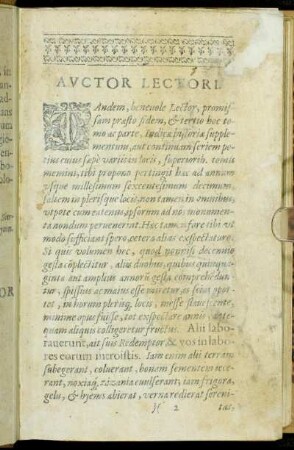 AVCTOR LECTORI.
TAndem, beneuole Lector, promis-
sam præsto fidem, & tertio hoc to-
mo ac parte, Indicæ historiæ supple-
mentum, aut continuam seriem
petius eius sæpè variis in locis, superiorib. tomis
memini, tibi propono pertingit hæc ad annum
vsque millesimum sexcentesimum decimum,
saltem in plerisque locis, non tamen in omnibus,
vtpote cum ea tenus ipsorum ad nos monumen-
ta nondum peruenerint. Hæc tam fare tibi
modo sufficiant spero, cetera alias exspectaturo.
Si quis volumen hoc, quod
gesta cōplectitur, aliis duobus, quibus quinqua-
ginta aut amplius annorū gesta comprehēdūn-
tur, spissius ac maius esse
tet, in horum plerisq, locis, messe
minime opus fuisse, tot exspectare annis
quam aliquis colligeretur fructus. Alii labo-
rauerunt, ait suis Redemptor & vos in labo-
res eorum introistis. Iam enim alii terram
subegerant, coluerant, bonam sementem
erant, noxiaq, zizania euulserant; iam frigora,
gelu, & hyems abierat, verna redierat sereni-
2 tas,